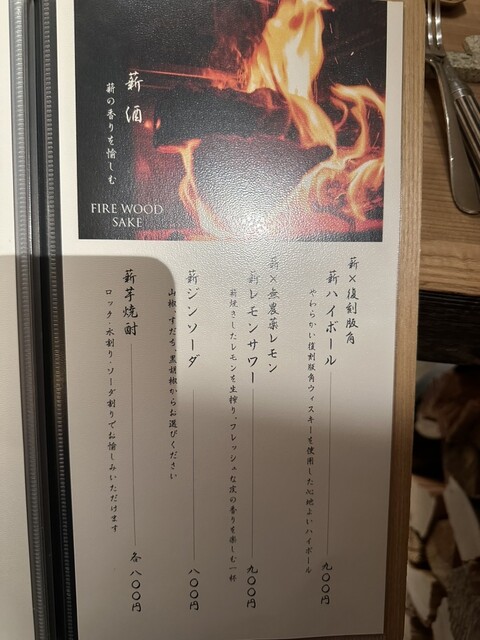 薪酒
薪の香りを愉しむ
FIRE WOOD
SAKE
薪×復刻版角
薪ハイボール 九〇〇円
やわらかい復刻版角ウィスキーを使用した心地よいハイボール
薪×無農薬レモン
薪レモンサワー 九〇〇円
薪焼きしたレモンを生搾り、フレッシュな窯の香りを楽しむ一杯
薪ジンソーダ 八〇〇円
山椒、すだち、黒胡椒からお選びください
薪芋焼酎 各八〇〇円
ロック・水割り・ソーダ割りでお愉しみいただけます